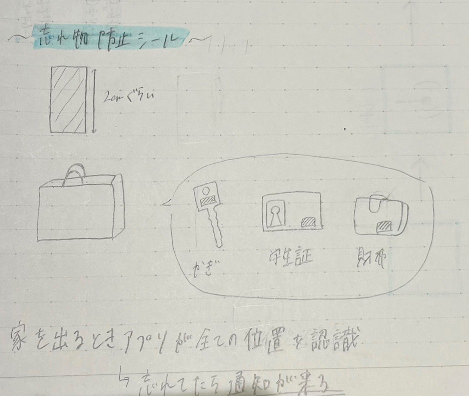 ～忘れ物防止シール～
2cmぐらい
かぎ
学生証
財布
家を出るときアプリが全ての位置を認識
↳忘れてたら通知が来る